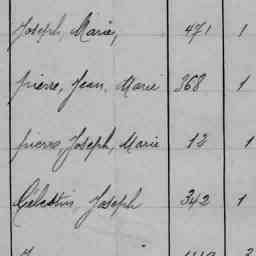 Joseph, Marie, 471 1
pierre, Jean, Marie 368 1
pierre, Joseph, Marie 12 1
Célestin, Joseph 342 1